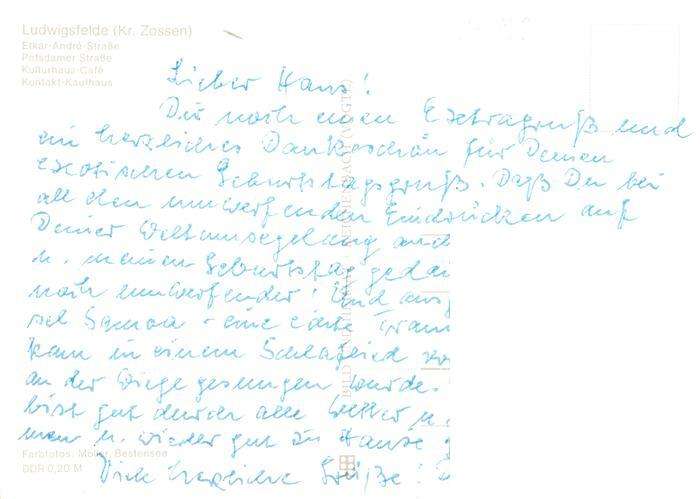 Ludwigsfelde (Kr. Zossen)
Etkar-André-Straße
Potsdamer Straße
Kulturhaus-Café
Kontakt-Kaufhaus
Lieber Hans!
Dir noch einen Extragruß und
ein herzliches Dankeschön für Deinen
exotischen Geburtstagsgruß. Daß Du bei
all den umwerfenden Eindrücken auf
Deiner Weltumsegelung auch
u. meinen Geburtstag geda
noch umwerfender! Und aus
sel Samoa - eine
kam in einem Schlaflied
an der Wiege gesungen wurde.
bist gut durch alle Wetter
men u. wieder gut zu Hause
Farbfotos: Müller, Bestensee
DDR 0,20 M
Viele herzliche Grüße!